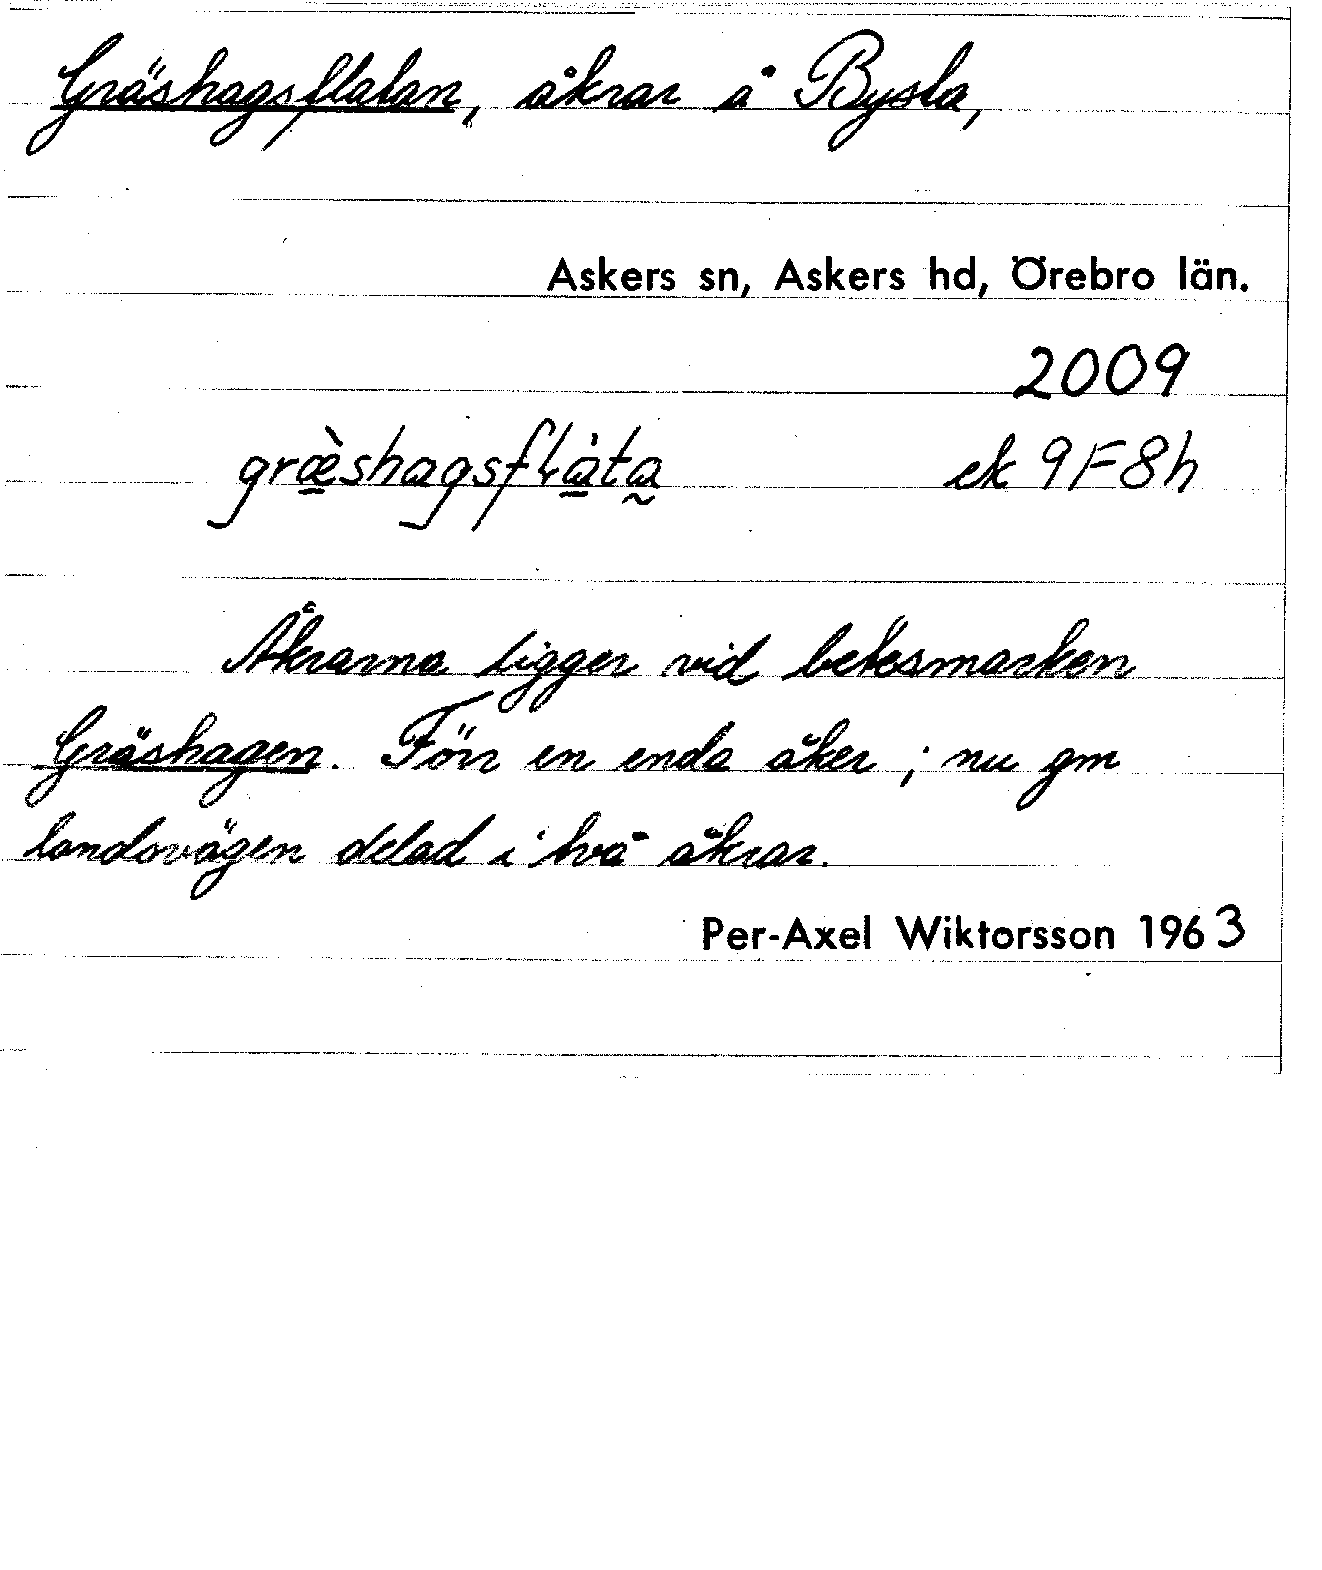 Gräshagsflatan, åkrar å Bysta,
Askers sn, Askers hd, Örebro län.
2009
græ̀shagsflàta ek 9F8h
Åkrarna ligger vid betesmarken
Gräshagen. Förr en enda åker; nu gm
landsvägen delad i två åkrar.
Per-Axel Wiktorsson 1963